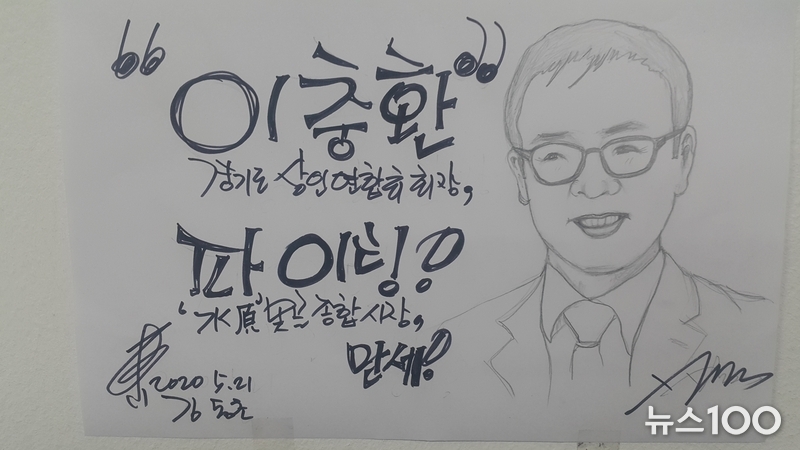 "이충환"
경기도 상인연합회 회장,
파이팅!
'水原'못골종합시장,
만세!
2020 5.21
김
뉴스100